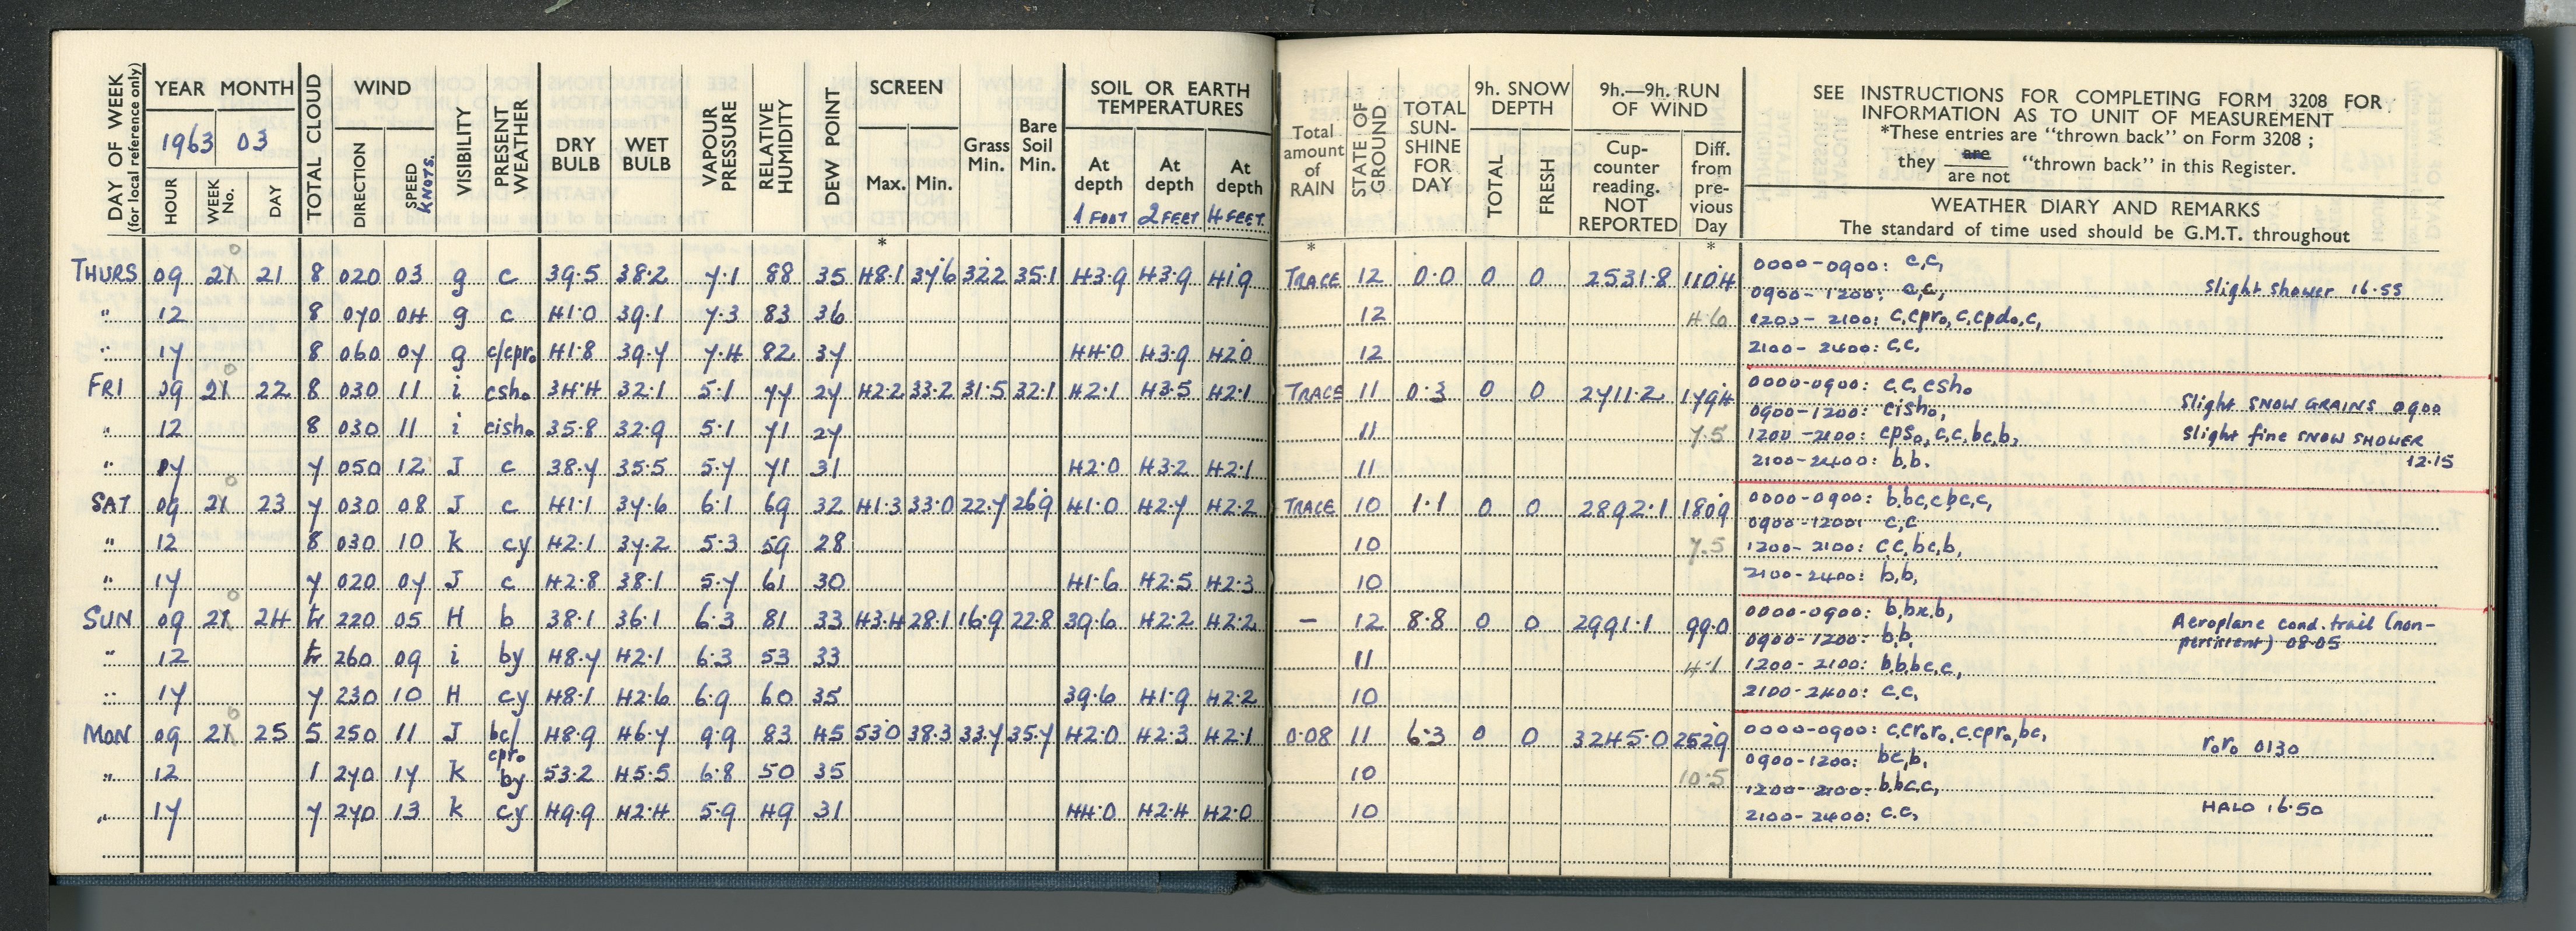 DAY OF WEEK (for local reference only)
YEAR MONTH
1963 03
HOUR WEEK No. DAY
TOTAL CLOUD
WIND
DIRECTION SPEED KNOTS.
VISIBILITY
PRESENT WEATHER
DRY BULB
WET BULB
VAPOUR PRESSURE
RELATIVE HUMIDITY
DEW POINT
SCREEN
Max. Min.
Grass Min.
Bare Soil Min.
SOIL OR EARTH TEMPERATURES
At depth 1 FOOT
At depth 2 FEET
At depth 4 FEET.
Total amount of RAIN
STATE OF GROUND
TOTAL SUN-SHINE FOR DAY
9h. SNOW DEPTH
TOTAL FRESH
9h.—9h. RUN OF WIND
Cup-counter reading. NOT REPORTED
Diff. from pre-vious Day
SEE INSTRUCTIONS FOR COMPLETING FORM 3208 FOR
INFORMATION AS TO UNIT OF MEASUREMENT
*These entries are "thrown back" on Form 3208 ;
they are / are not "thrown back" in this Register.
WEATHER DIARY AND REMARKS
The standard of time used should be G.M.T. throughout
* * *
THURS 09 20 21 8 020 03 g c 39.5 38.2 7.1 88 35 48.1 37.6 32.2 35.1 43.9 43.9 41.9 TRACE 12 0.0 0 0 2531.8 110.4 0000-0900: c,c,
0900-1200: c,c, Slight shower 16.55
" 12 8 070 04 g c 41.0 39.1 7.3 83 36 12 4.6 1200-2100: c,cpro,c,cpdo,c,
" 17 8 060 07 g c/cpro 41.8 39.7 7.4 82 37 44.0 43.9 42.0 12 2100-2400: c,c,
FRI 09 20 22 8 030 11 i csho 34.4 32.1 5.1 77 27 42.2 33.2 31.5 32.1 42.1 43.5 42.1 TRACE 11 0.3 0 0 2711.2 179.4 0000-0900: c,c,csho
0900-1200: cisho, Slight SNOW GRAINS 0900
" 12 8 030 11 i cisho 35.8 32.9 5.1 71 27 11 7.5 1200-2100: cpso,c,c,bc,b, Slight fine SNOW SHOWER
" 17 7 050 12 J c 38.7 35.5 5.7 71 31 42.0 43.2 42.1 11 2100-2400: b,b. 12.15
SAT 09 20 23 7 030 08 J c 41.1 37.6 6.1 69 32 41.3 33.0 22.7 26.9 41.0 42.7 42.2 TRACE 10 1.1 0 0 2892.1 180.9 0000-0900: b,bc,c,bc,c,
0900-1200: c,c
" 12 8 030 10 k cy 42.1 37.2 5.3 59 28 10 7.5 1200-2100: c,c,bc,b,
" 17 7 020 07 J c 42.8 38.1 5.7 61 30 41.6 42.5 42.3 10 2100-2400: b,b,
SUN 09 20 24 tr 220 05 H b 38.1 36.1 6.3 81 33 43.4 28.1 16.9 22.8 39.6 42.2 42.2 — 12 8.8 0 0 2991.1 99.0 0000-0900: b,bx,b, Aeroplane cond. trail (non-
0900-1200: b,b, persistent) 08.05
" 12 tr 260 09 i by 48.7 42.1 6.3 53 33 11 4.1 1200-2100: b,b,bc,c,
" 17 7 230 10 H cy 48.1 42.6 6.9 60 35 39.6 41.9 42.2 10 2100-2400: c,c,
MON 09 20 25 5 250 11 J bc/cpro 48.9 46.7 9.9 83 45 53.0 38.3 33.7 35.7 42.0 42.3 42.1 0.08 11 6.3 0 0 3245.0 252.9 0000-0900: c,croro,c,cpro,bc, roro 0130
0900-1200: bc,b,
" 12 1 270 17 k by 53.2 45.5 6.8 50 35 10 10.5 1200-2100: b,bc,c,
" 17 7 270 13 k cy 49.9 42.4 5.9 49 31 44.0 42.4 42.0 10 2100-2400: c,c, HALO 16.50